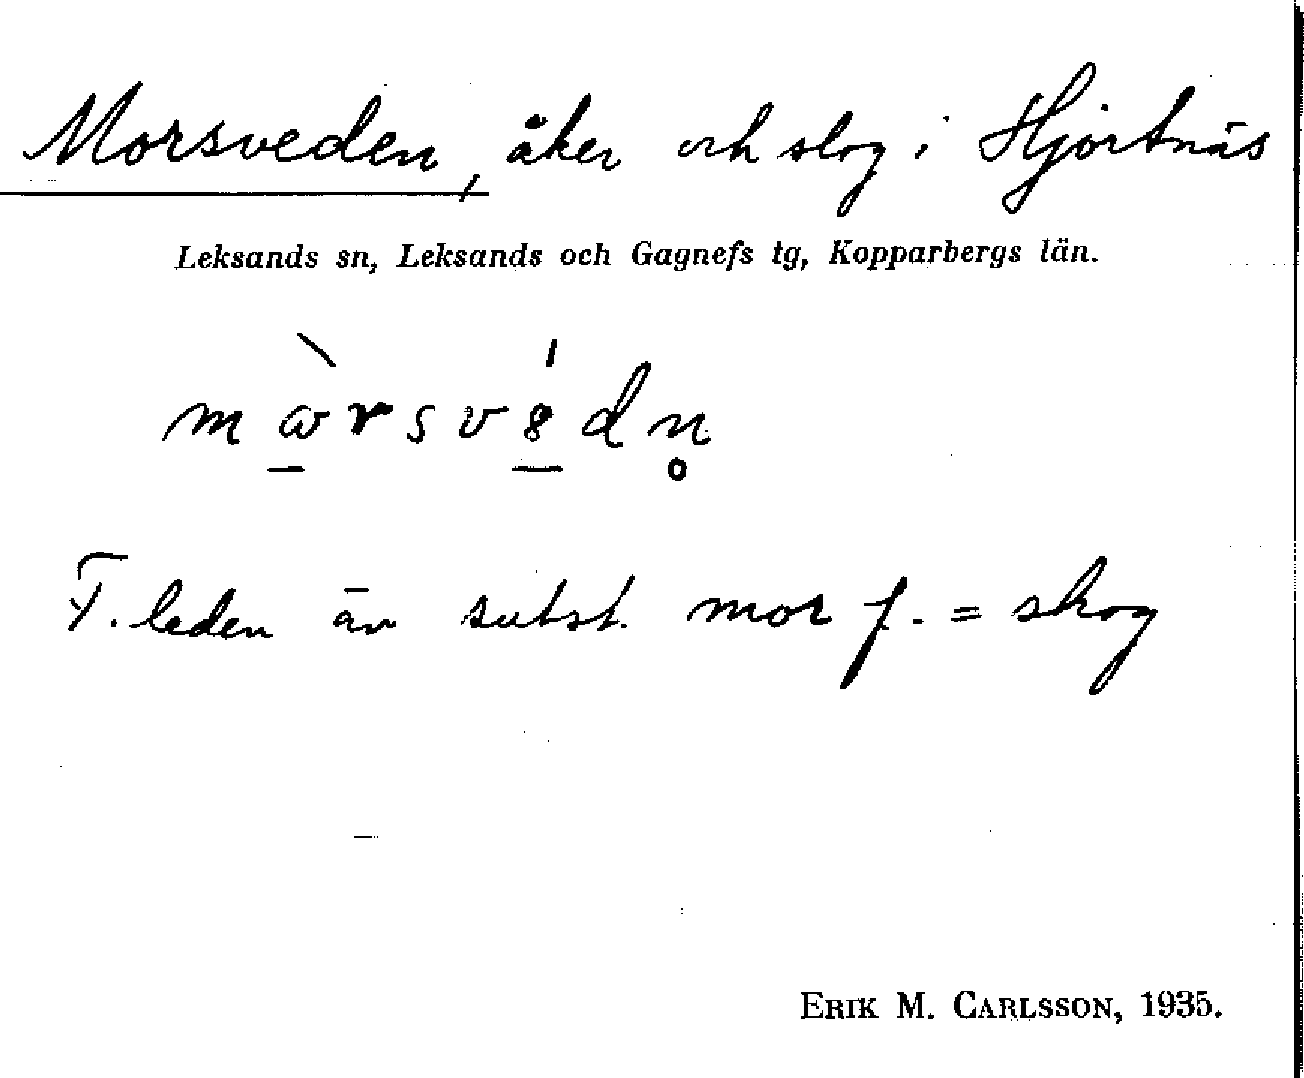 Morsveden, åker och slog i Hjortnäs
Leksands sn, Leksands och Gagnefs tg, Kopparbergs län.
F. leden är subst. mor f. = skog
ERIK M. CARLSSON, 1935.